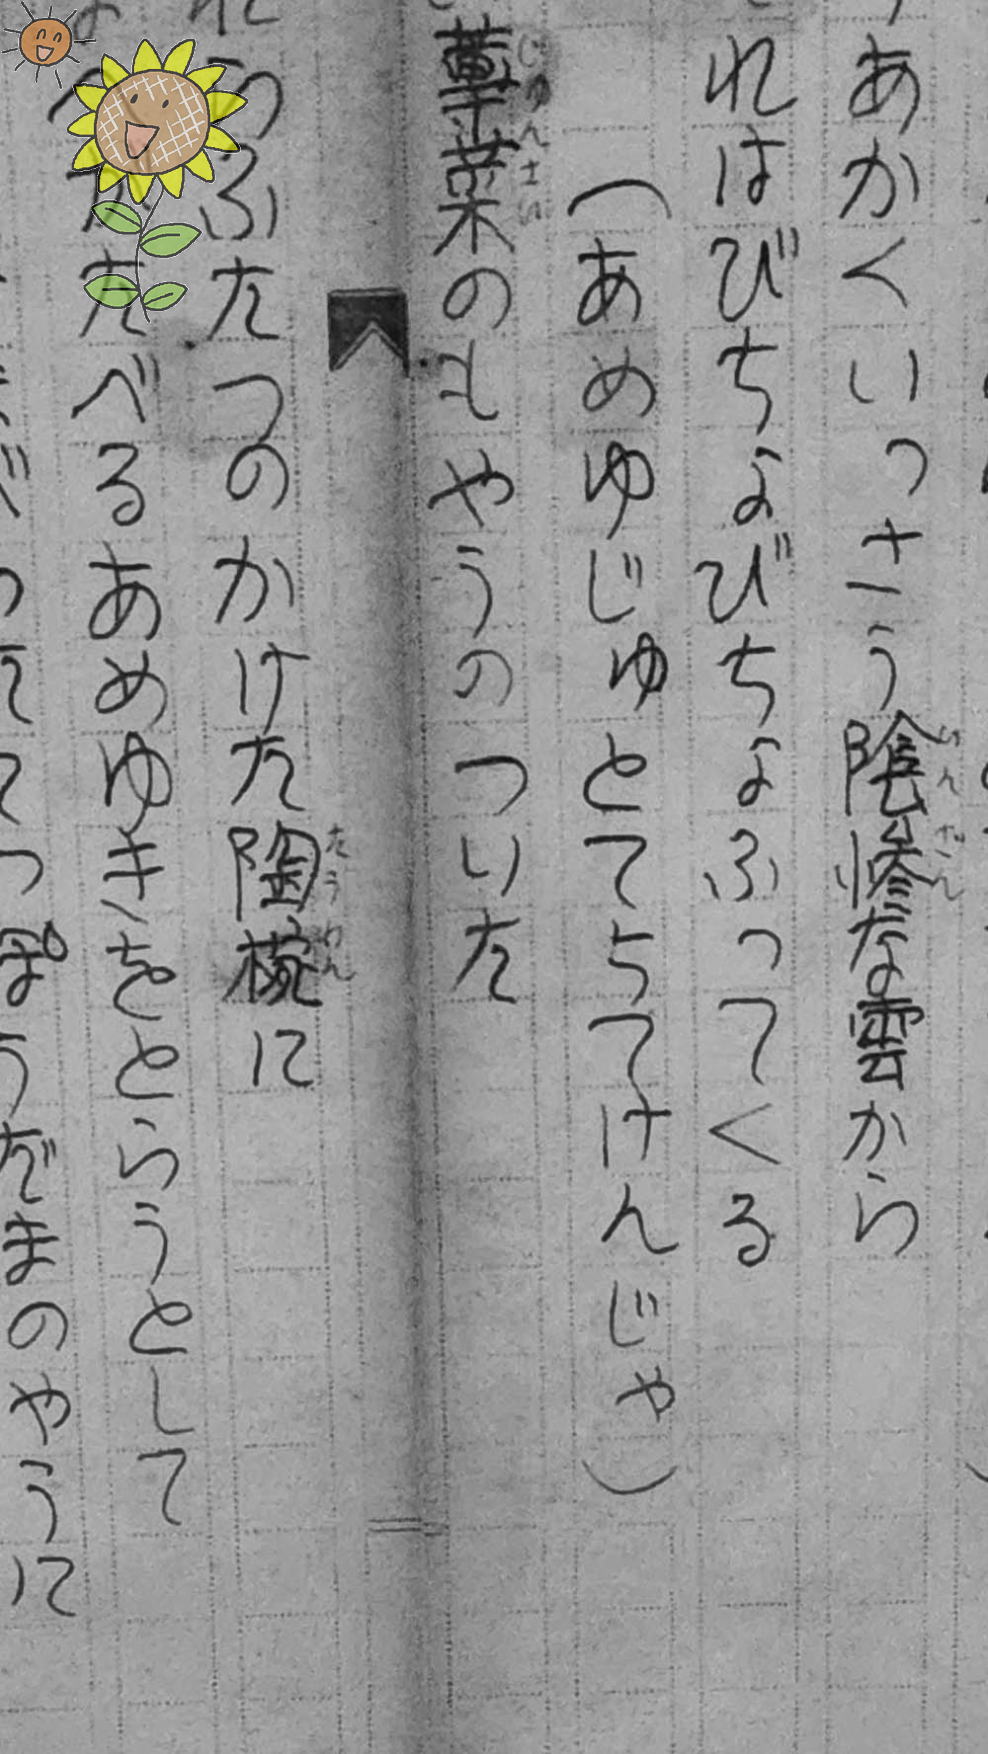 あかくいっさう陰惨な雲から
いんざん
れはびちょびちょふってくる
（あめゆじゅとてちてけんじゃ）
蓴菜のもやうのついた
じゅんさい
ふたつのかけた陶椀に
たうわん
たべるあめゆきをとらうとして
てっぽうだまのやうに